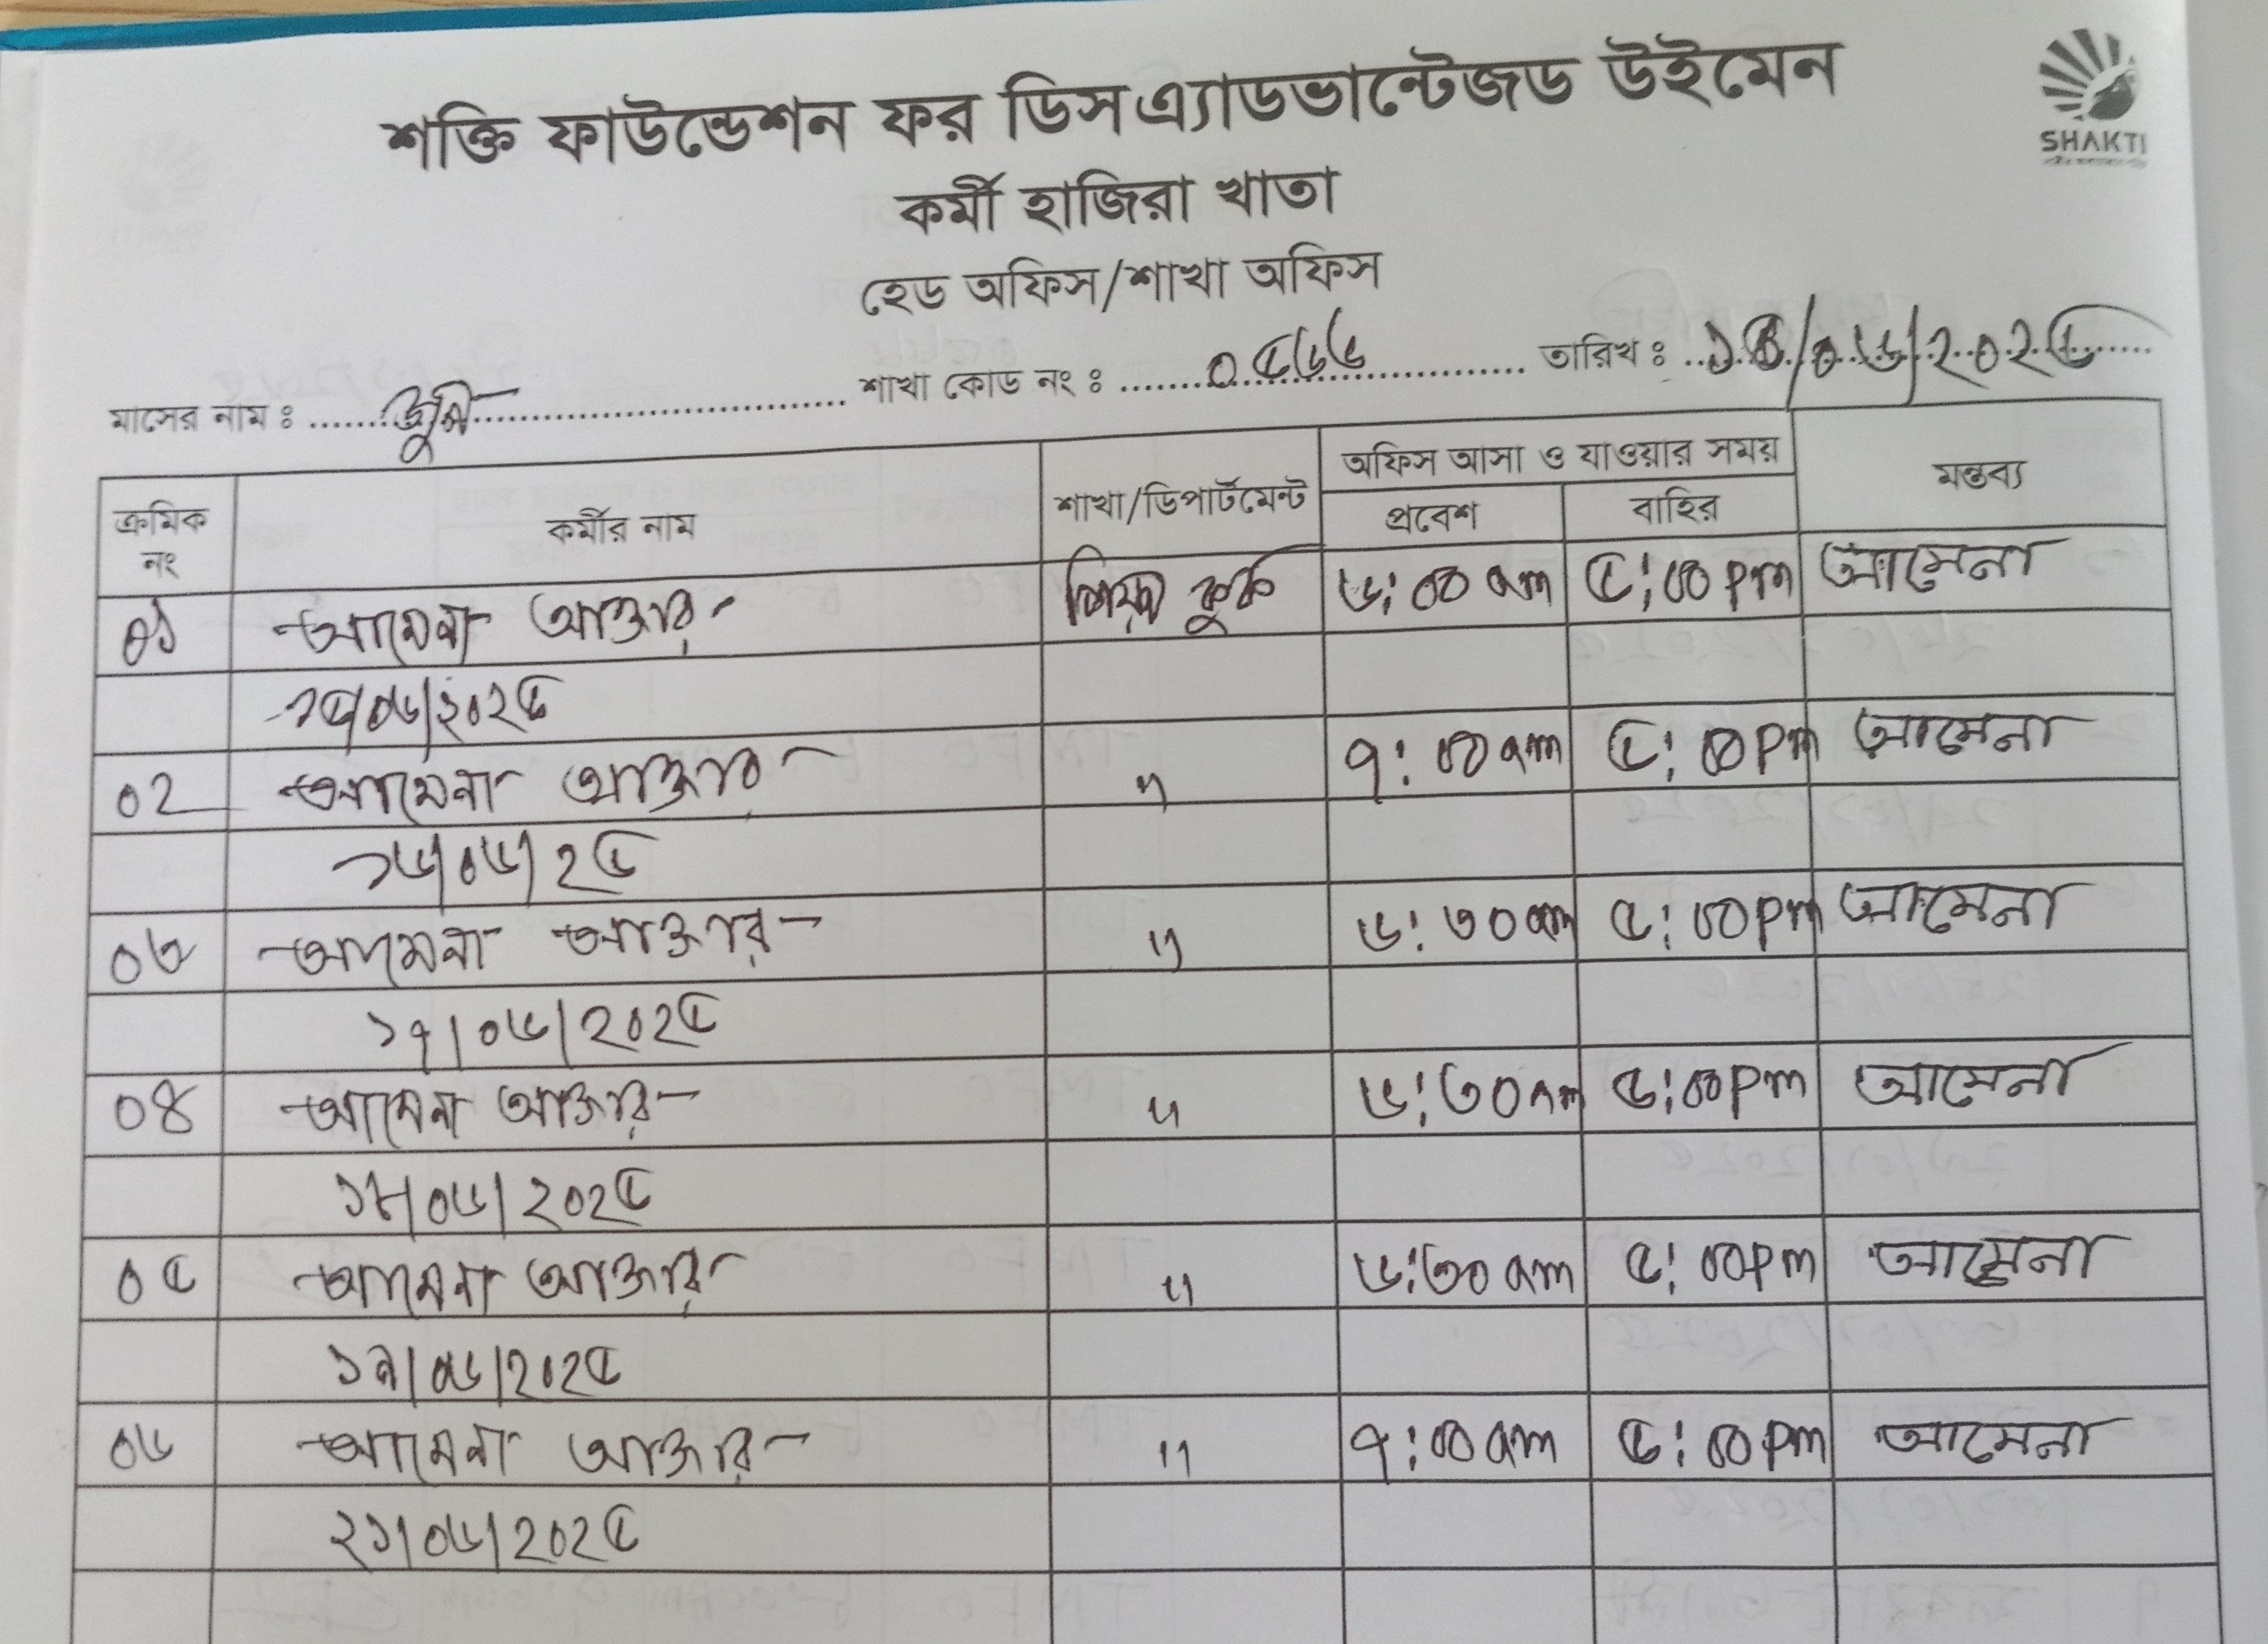 শক্তি ফাউন্ডেশন ফর ডিসএ্যাডভান্টেজড উইমেন
SHAKTI
কর্মী হাজিরা খাতা
হেড অফিস/শাখা অফিস
মাসের নাম ঃ জুন শাখা কোড নং ঃ ০৫৬৬ তারিখ ঃ ১৫/০৬/২০২৫
ক্রমিক নং কর্মীর নাম শাখা/ডিপার্টমেন্ট অফিস আসা ও যাওয়ার সময় মন্তব্য
প্রবেশ বাহির
০১ আমেনা আক্তার পিয়ন কুক ৬:০০ am ৫:০০ pm আমেনা
১৫/০৬/২০২৫
০২ আমেনা আক্তার " ৭:০০ am ৫:০০ pm আমেনা
১৬/০৬/২৫
০৩ আমেনা আক্তার " ৬:৩০ am ৫:০০ pm আমেনা
১৭/০৬/২০২৫
০৪ আমেনা আক্তার " ৬:৩০ am ৫:০০ pm আমেনা
১৮/০৬/২০২৫
০৫ আমেনা আক্তার " ৬:৩০ am ৫:০০ pm আমেনা
১৯/০৬/২০২৫
০৬ আমেনা আক্তার " ৭:০০ am ৫:০০ pm আমেনা
২১/০৬/২০২৫